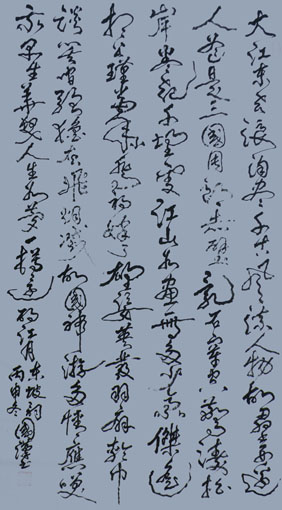 大江東去浪淘盡千古風流人物故壘西邊
人道是三國周郎赤壁亂石穿空驚濤拍
岸卷起千堆雪江山如畫一時多少豪傑遙
想公瑾當年小喬初嫁了雄姿英發羽扇綸巾
談笑間灰飛烟滅故國神游多情應笑
我早生華髮人生如夢一樽還酹江月東坡詞
丙申冬國